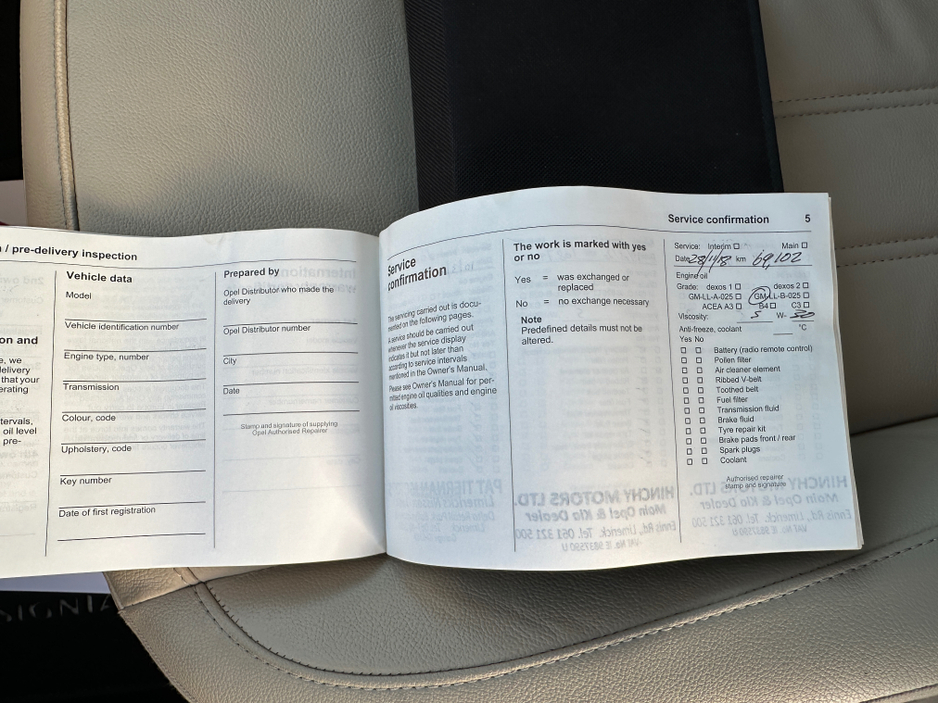 / pre-delivery inspection
Vehicle data
Model
Vehicle identification number
Engine type, number
Transmission
Colour, code
Upholstery, code
Key number
Date of first registration
Prepared by
Opel Distributor who made the
delivery
Opel Distributor number
City
Date
Stamp and signature of supplying
Opel Authorised Repairer
Service confirmation 5
Service
confirmation
The servicing carried out is docu-
mented on the following pages.
A service should be carried out
whenever the service display
indicates it but not later than
according to service intervals
mentioned in the Owner's Manual.
Please see Owner's Manual for per-
mitted engine oil qualities and engine
oil viscosities.
The work is marked with yes
or no
Yes = was exchanged or
replaced
No = no exchange necessary
Note
Predefined details must not be
altered.
Service: Interim Main
Date 28/11/18 km 69,102
Engine oil
Grade: dexos 1 dexos 2
GM-LL-A-025 GM-LL-B-025
ACEA A3 B4 C3
Viscosity: 5 W- 30
Anti-freeze, coolant °C
Yes No
Battery (radio remote control)
Pollen filter
Air cleaner element
Ribbed V-belt
Toothed belt
Fuel filter
Transmission fluid
Brake fluid
Tyre repair kit
Brake pads front / rear
Spark plugs
Coolant
Authorised repairer
stamp and signature
HINCHY MOTORS LTD.
Main Opel & Kia Dealer
Ennis Rd., Limerick. Tel. 061 321 500
HINCHY MOTORS LTD.
Main Opel & Kia Dealer
Ennis Rd., Limerick. Tel. 061 321 500